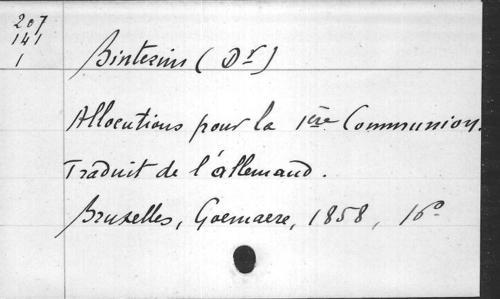 207
141
1
Binterim (Dr)
Allocutions pour la 1ère Communion.
Traduit de l'allemand.
Bruxelles, Goemaere, 1858, 16°